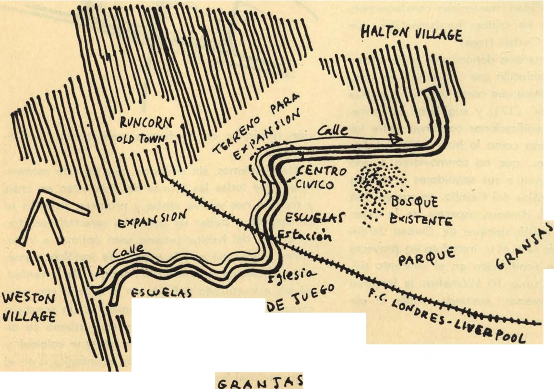 HALTON VILLAGE
RUNCORN
OLD TOWN
TERRENO PARA
EXPANSION
Calle
CENTRO
CIVICO
BOSQUE
EXISTENTE
EXPANSION
ESCUELAS
Estación
GRANJAS
PARQUE
Calle
Iglesia
WESTON
VILLAGE
ESCUELAS
DE JUEGO
F.C. LONDRES-LIVERPOOL
GRANJAS